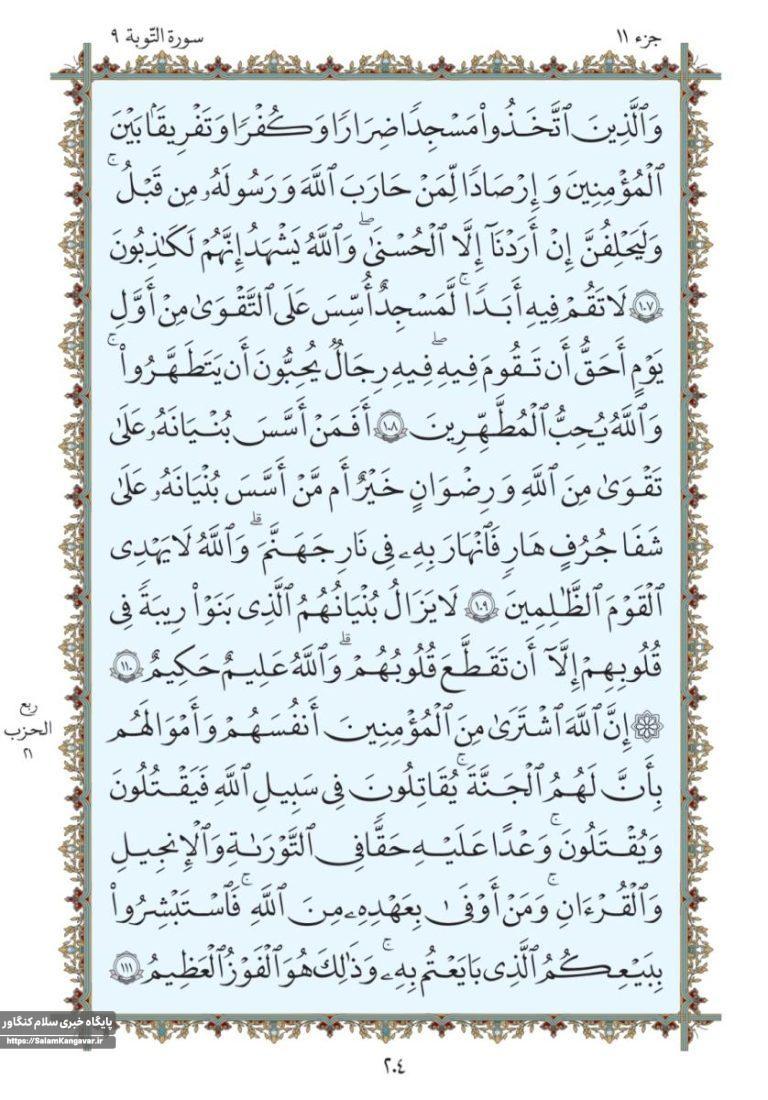 جزء ١١
سورة التّوبة ٩
وَٱلَّذِينَ ٱتَّخَذُوا۟ مَسْجِدًا ضِرَارًا وَكُفْرًا وَتَفْرِيقًۢا بَيْنَ
ٱلْمُؤْمِنِينَ وَإِرْصَادًا لِّمَنْ حَارَبَ ٱللَّهَ وَرَسُولَهُۥ مِن قَبْلُ ۚ
وَلَيَحْلِفُنَّ إِنْ أَرَدْنَآ إِلَّا ٱلْحُسْنَىٰ ۖ وَٱللَّهُ يَشْهَدُ إِنَّهُمْ لَكَٰذِبُونَ
١٠٧ لَا تَقُمْ فِيهِ أَبَدًا ۚ لَّمَسْجِدٌ أُسِّسَ عَلَى ٱلتَّقْوَىٰ مِنْ أَوَّلِ
يَوْمٍ أَحَقُّ أَن تَقُومَ فِيهِ ۖ فِيهِ رِجَالٌ يُحِبُّونَ أَن يَتَطَهَّرُوا۟ ۚ
وَٱللَّهُ يُحِبُّ ٱلْمُطَّهِّرِينَ ١٠٨ أَفَمَنْ أَسَّسَ بُنْيَٰنَهُۥ عَلَىٰ
تَقْوَىٰ مِنَ ٱللَّهِ وَرِضْوَانٍ خَيْرٌ أَم مَّنْ أَسَّسَ بُنْيَانَهُۥ عَلَىٰ
شَفَا جُرُفٍ هَارٍ فَٱنْهَارَ بِهِۦ فِى نَارِ جَهَنَّمَ ۗ وَٱللَّهُ لَا يَهْدِى
ٱلْقَوْمَ ٱلظَّٰلِمِينَ ١٠٩ لَا يَزَالُ بُنْيَانُهُمُ ٱلَّذِى بَنَوْا۟ رِيبَةً فِى
قُلُوبِهِمْ إِلَّآ أَن تَقَطَّعَ قُلُوبُهُمْ ۗ وَٱللَّهُ عَلِيمٌ حَكِيمٌ ١١٠
۞ إِنَّ ٱللَّهَ ٱشْتَرَىٰ مِنَ ٱلْمُؤْمِنِينَ أَنفُسَهُمْ وَأَمْوَالَهُم
بِأَنَّ لَهُمُ ٱلْجَنَّةَ ۚ يُقَاتِلُونَ فِى سَبِيلِ ٱللَّهِ فَيَقْتُلُونَ
وَيُقْتَلُونَ ۖ وَعْدًا عَلَيْهِ حَقًّا فِى ٱلتَّوْرَىٰةِ وَٱلْإِنجِيلِ
وَٱلْقُرْءَانِ ۚ وَمَنْ أَوْفَىٰ بِعَهْدِهِۦ مِنَ ٱللَّهِ ۚ فَٱسْتَبْشِرُوا۟
بِبَيْعِكُمُ ٱلَّذِى بَايَعْتُم بِهِۦ ۚ وَذَٰلِكَ هُوَ ٱلْفَوْزُ ٱلْعَظِيمُ ١١١
ربع
الحزب
٢١
پایگاه خبری سلام کنگاور
https://SalamKangavar.ir
٢٠٤